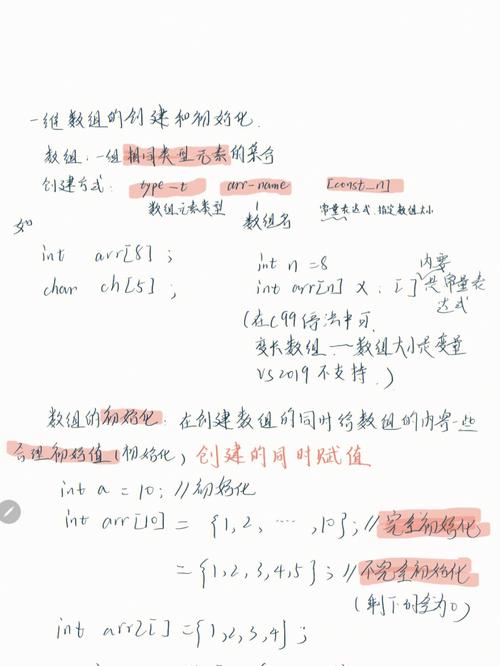 一维数组的创建和初始化.
数组:一组相同类型元素的集合
创建方式: type_t arr_name [const_n]
数组元素类型 数组名 常量表达式.指定数组大小
如
int arr[8];
char ch[5];
int n=8
int arr[n] ×. [ ]内要是常量表达式
(在C99语法中可.
变长数组.—数组大小是变量
VS2019不支持.)
数组的初始化: 在创建数组的同时给数组的内容一些
合理初始值(初始化) 创建的同时赋值
int a = 10; //初始化
int arr[10] = {1,2, ... ,10}; //完全初始化
={1,2,3,4,5}; //不完全初始化
(剩下的全为0)
int arr2[ ]={1,2,3,4};